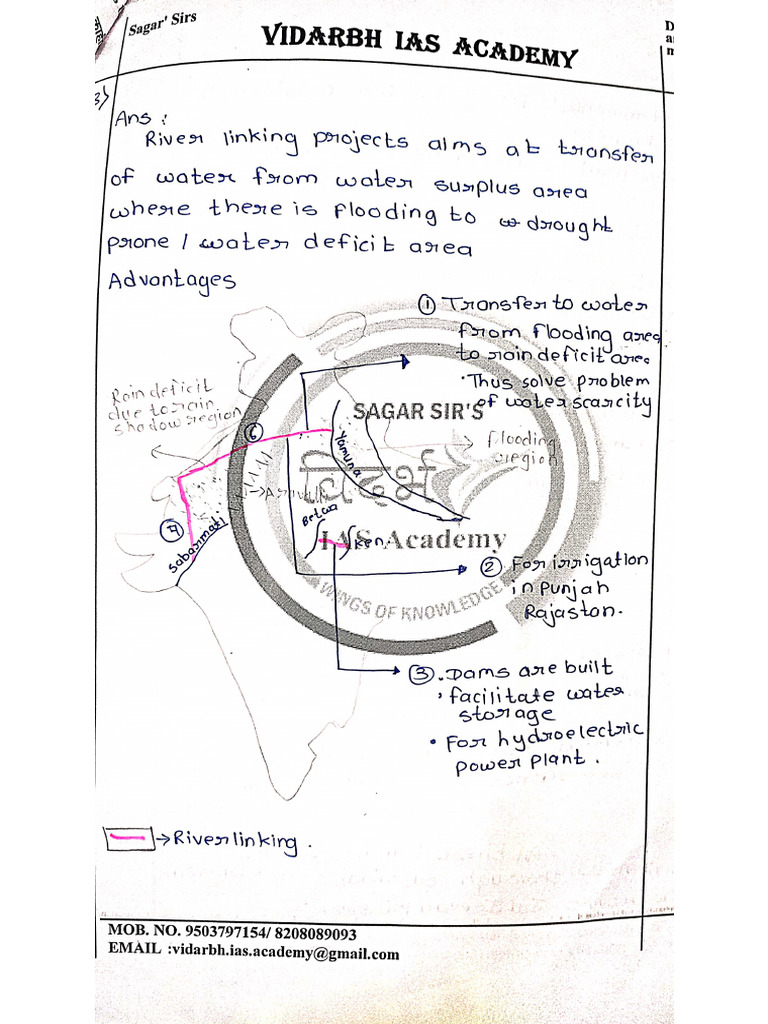 Sagar' Sirs
VIDARBH IAS ACADEMY
D
a
m
3)
Ans :
River linking projects aims at transfer
of water from water surplus area
where there is flooding to w drought
prone / water deficit area
Advantages
① Transfer to water
from flooding area
to rain deficit area
· Thus solve problem
of water scarcity
Rain deficit
due to rain
shadow region
SAGAR SIR'S
विदर्भ
IAS Academy
WINGS OF KNOWLEDGE
⑥
Yamuna
flooding
region
Betwa
Ken
⑦
Sabarmati
② For irrigation
in Punjab
Rajaston.
③ . Dams are built
, facilitate water
storage
• For hydroelectric
power plant .
→ River linking .
MOB. NO. 9503797154/ 8208089093
EMAIL :vidarbh.ias.academy@gmail.com